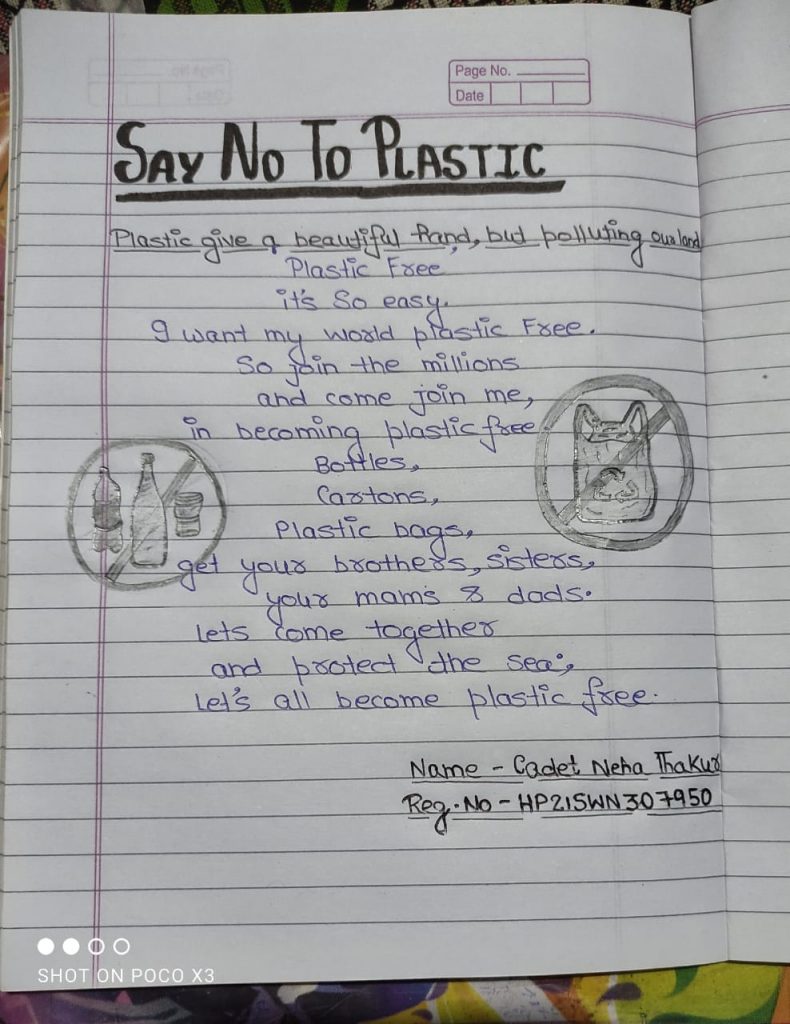 Page No.
Date
SAY NO TO PLASTIC
Plastic give a beautiful hand, but polluting our land
Plastic Free
it's So easy.
I want my world plastic Free.
So join the millions
and come join me,
in becoming plastic free
Bottles,
Cartons,
Plastic bags,
get your brothers, sisters,
your mam's & dads.
lets come together
and protect the sea;
Let's all become plastic free.
Name - Cadet Neha Thakur
Reg. No - HP21SWN307950
SHOT ON POCO X3